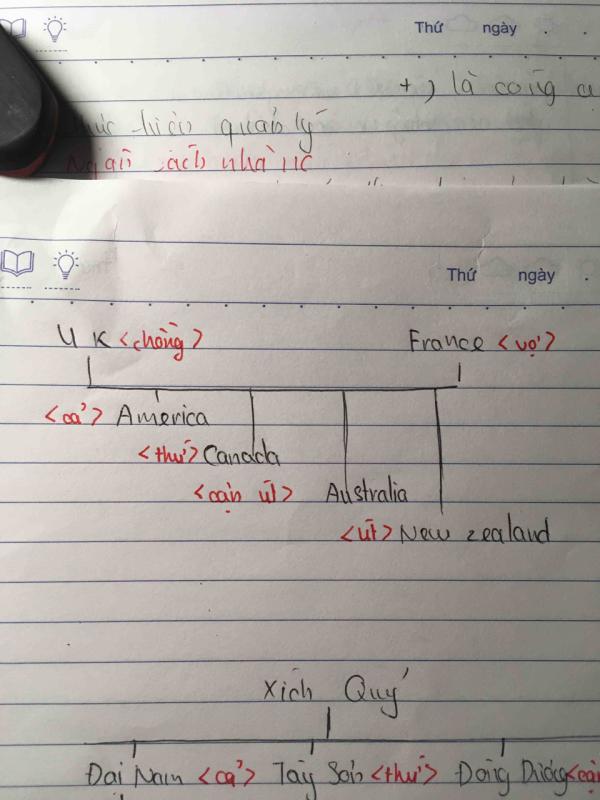 Thứ ngày . .
+) là công c
thức hiện quản lý
Ngân sách nhà nc
Thứ ngày .
UK <chồng> France <vợ>
<cả> America
<thứ> Canada
<cận út> Australia
<út> New zealand
Xích Quỷ
Đại Nam <cả> Tây Sơn <thứ> Đông Dương <cận